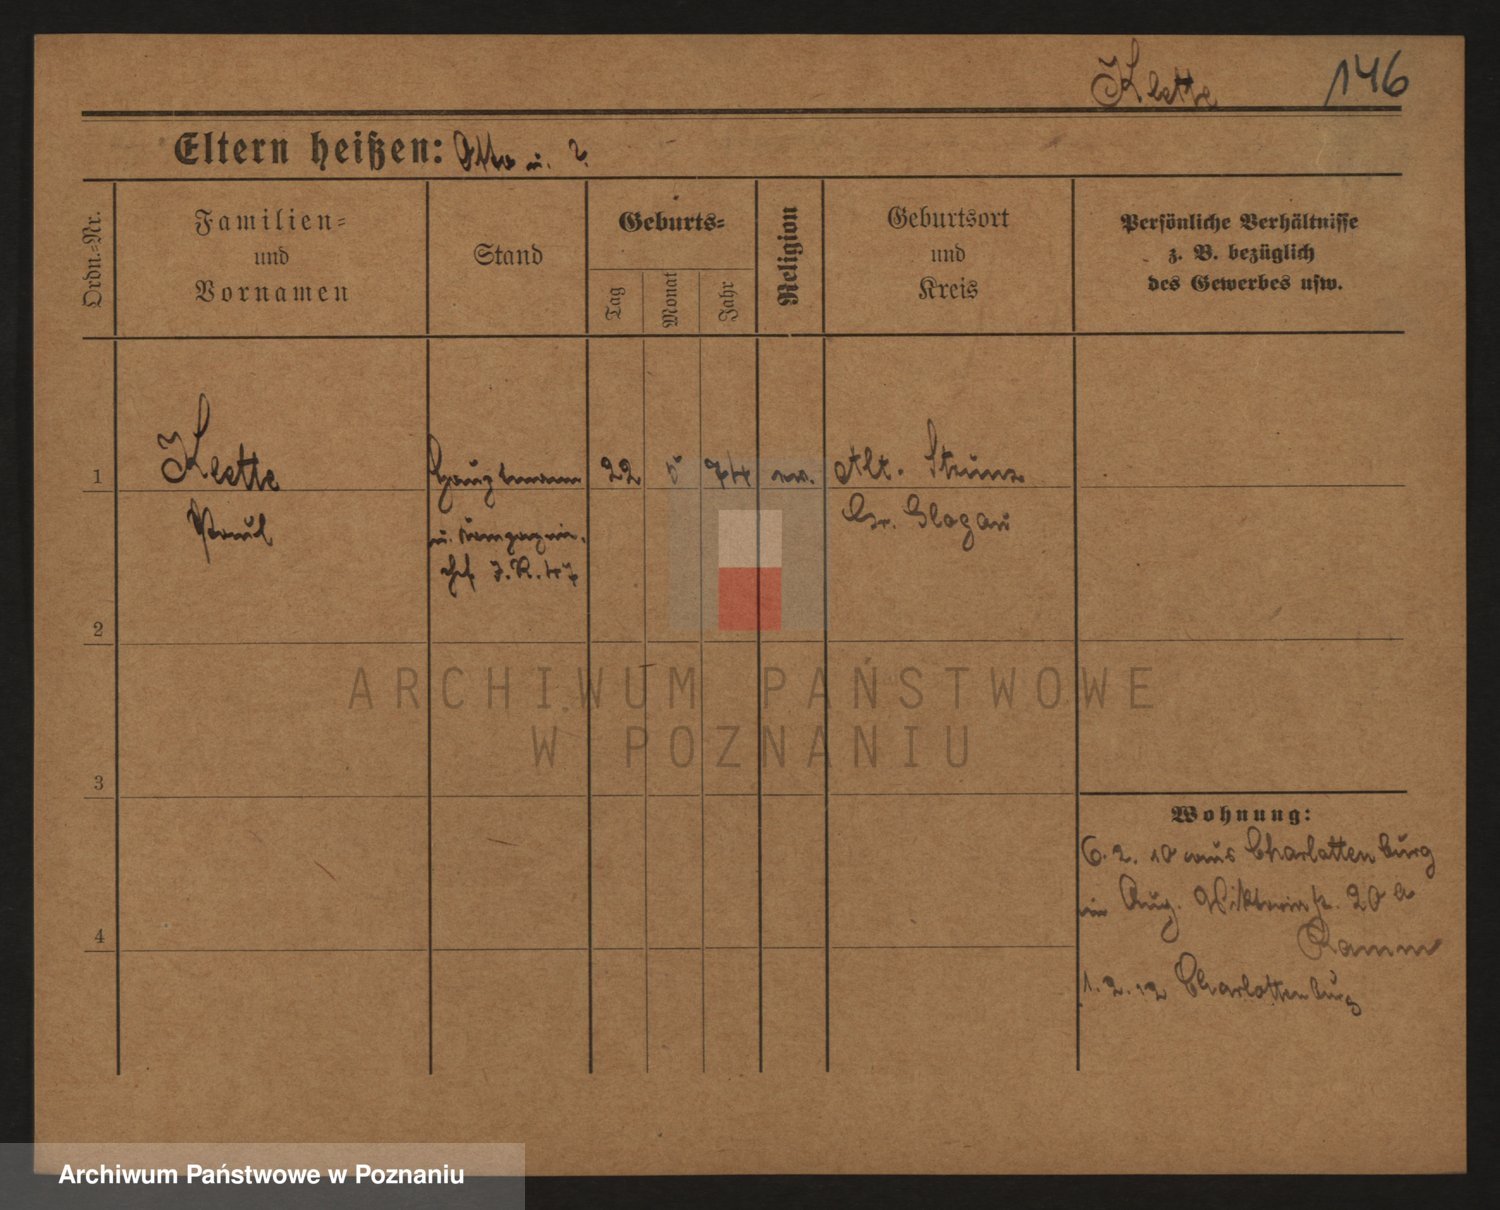 Klette 146
Eltern heißen: Otto u. ?
Ordn.=Nr.
Familien=
und
Vornamen
Stand
Geburts=
Tag
Monat
Jahr
Religion
Geburtsort
und
Kreis
Persönliche Verhältnisse
z. B. bezüglich
des Gewerbes usw.
1 Klette Hauptmann 22 5 74 ev. Alt. Strunz
Paul u. Kompagnie. Kr. Glogau
chef J. R. 47
2
ARCHIWUM PAŃSTWOWE
W POZNANIU
3
Wohnung:
6. 2. 10 aus Charlottenburg
in Aug. Viktoriastr. 20 a
Ramm
4
1. 2. 12 Charlottenburg
Archiwum Państwowe w Poznaniu